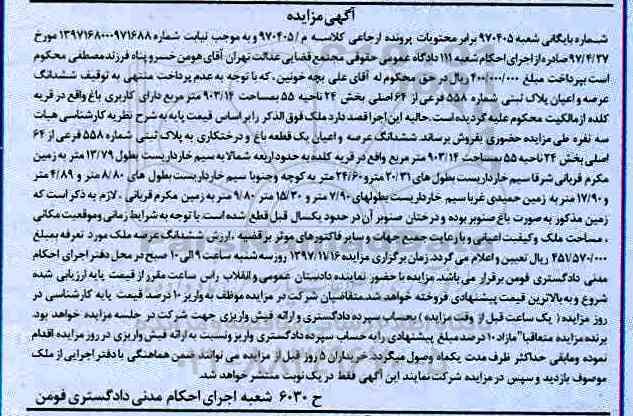 آگهی مزایده
شماره بایگانی شعبه ۹۷۰۴۰۵ برابر محتویات پرونده ارجاعی کلاسه م / ۹۷۰۴۰۵ و به موجب نیابت شماره ۱۳۹۷۱۶۸۰۰۰۹۷۱۶۸۸ مورخ
۹۷/۴/۲۷ صادره از اجرای احکام شعبه ۱۱۱ دادگاه عمومی حقوقی مجتمع قضایی عدالت تهران آقای هومن خسرو پناه فرزند مصطفی محکوم
است بپرداخت مبلغ ۴۰۰/۰۰۰/۰۰۰ ریال در حق محکوم له آقای علی بچه خونین ، که با توجه به عدم پرداخت منتهی به توقیف ششدانگ
عرصه و اعیان پلاک ثبتی شماره ۵۵۸ فرعی از ۶۴ اصلی بخش ۲۴ ناحیه ۵۵ بمساحت ۹۰۳/۱۴ متر مربع دارای کاربری باغ واقع در قریه
کلده از مالکیت محکوم علیه گردیده است. حالیه این اجرا قصد دارد ملک فوق الذکر را بر اساس قیمت پایه به شرح نظریه کارشناسی هیات
سه نفره طی مزایده حضوری بفروش برساند. ششدانگ عرصه و اعیان یک قطعه باغ و درختکاری به پلاک ثبتی شماره ۵۵۸ فرعی از ۶۴
اصلی بخش ۲۴ ناحیه ۵۵ بمساحت ۹۰۳/۱۴ متر مربع واقع در قریه کلده به حدود اربعه شمالا به سیم خارداریست بطول ۱۳/۷۹ متر به زمین
مکرم قربانی شرقا سیم خارداریست بطول های ۲۰/۳۱ متر و ۲۴/۶۰ متر به کوچه و جنوبا سیم خارداریست بطول های ۸/۸۰ متر و ۴/۸۹ متر
و ۱۷/۹۰ متر به زمین حمیدی غربا سیم خارداریست بطولهای ۷/۹۰ متر و ۱۵/۳۰ متر ۹/۸۰ متر به زمین مکرم قربانی . لازم به ذکر است که
زمین مذکور به صورت باغ صنوبر بوده و درختان صنوبر آن در حدود یکسال قبل قطع شده است. با توجه به شرایط زمانی و موقعیت مکانی
، مساحت ملک و کیفیت اعیانی و با رعایت جمیع جهات و سایر فاکتورهای موثر بر قضیه ، ارزش ششدانگ عرصه ملک مورد تعرفه بمبلغ
۴۵۱/۵۷۰/۰۰۰ ریال تعیین و اعلام می گردد. زمان برگزاری مزایده ۱۳۹۷/۱۱/۱۶ روز سه شنبه ساعت ۹ الی ۱۰ صبح در محل دفتر اجرای احکام
مدنی دادگستری فومن برقرار می باشد. مزایده با حضور نماینده دادستان عمومی و انقلاب راس ساعت مقرر از قیمت پایه ارزیابی شده
شروع و به بالاترین قیمت پیشنهادی فروخته خواهد شد. متقاضیان شرکت در مزایده موظف به واریز ۱۰ درصد قیمت پایه کارشناسی در
روز مزایده ( یک ساعت قبل از وقت مزایده ) بحساب سپرده دادگستری و ارائه فیش واریزی جهت شرکت در جلسه مزایده خواهد بود.
برنده مزایده متعاقبا" مازاد ۱۰ درصد مبلغ پیشنهادی را به حساب سپرده دادگستری واریز و نسبت به ارائه فیش واریزی در روز مزایده اقدام
نموده و مابقی حداکثر ظرف مدت یکماه وصول میگردد. خریداران ۵ روز قبل از مزایده می توانند ضمن هماهنگی با دفتر اجرایی از ملک
موصوف بازدید و سپس در مزایده شرکت نمایند. این آگهی فقط در یک نوبت منتشر خواهد شد.
ح ۶۰۳۰ شعبه اجرای احکام مدنی دادگستری فومن